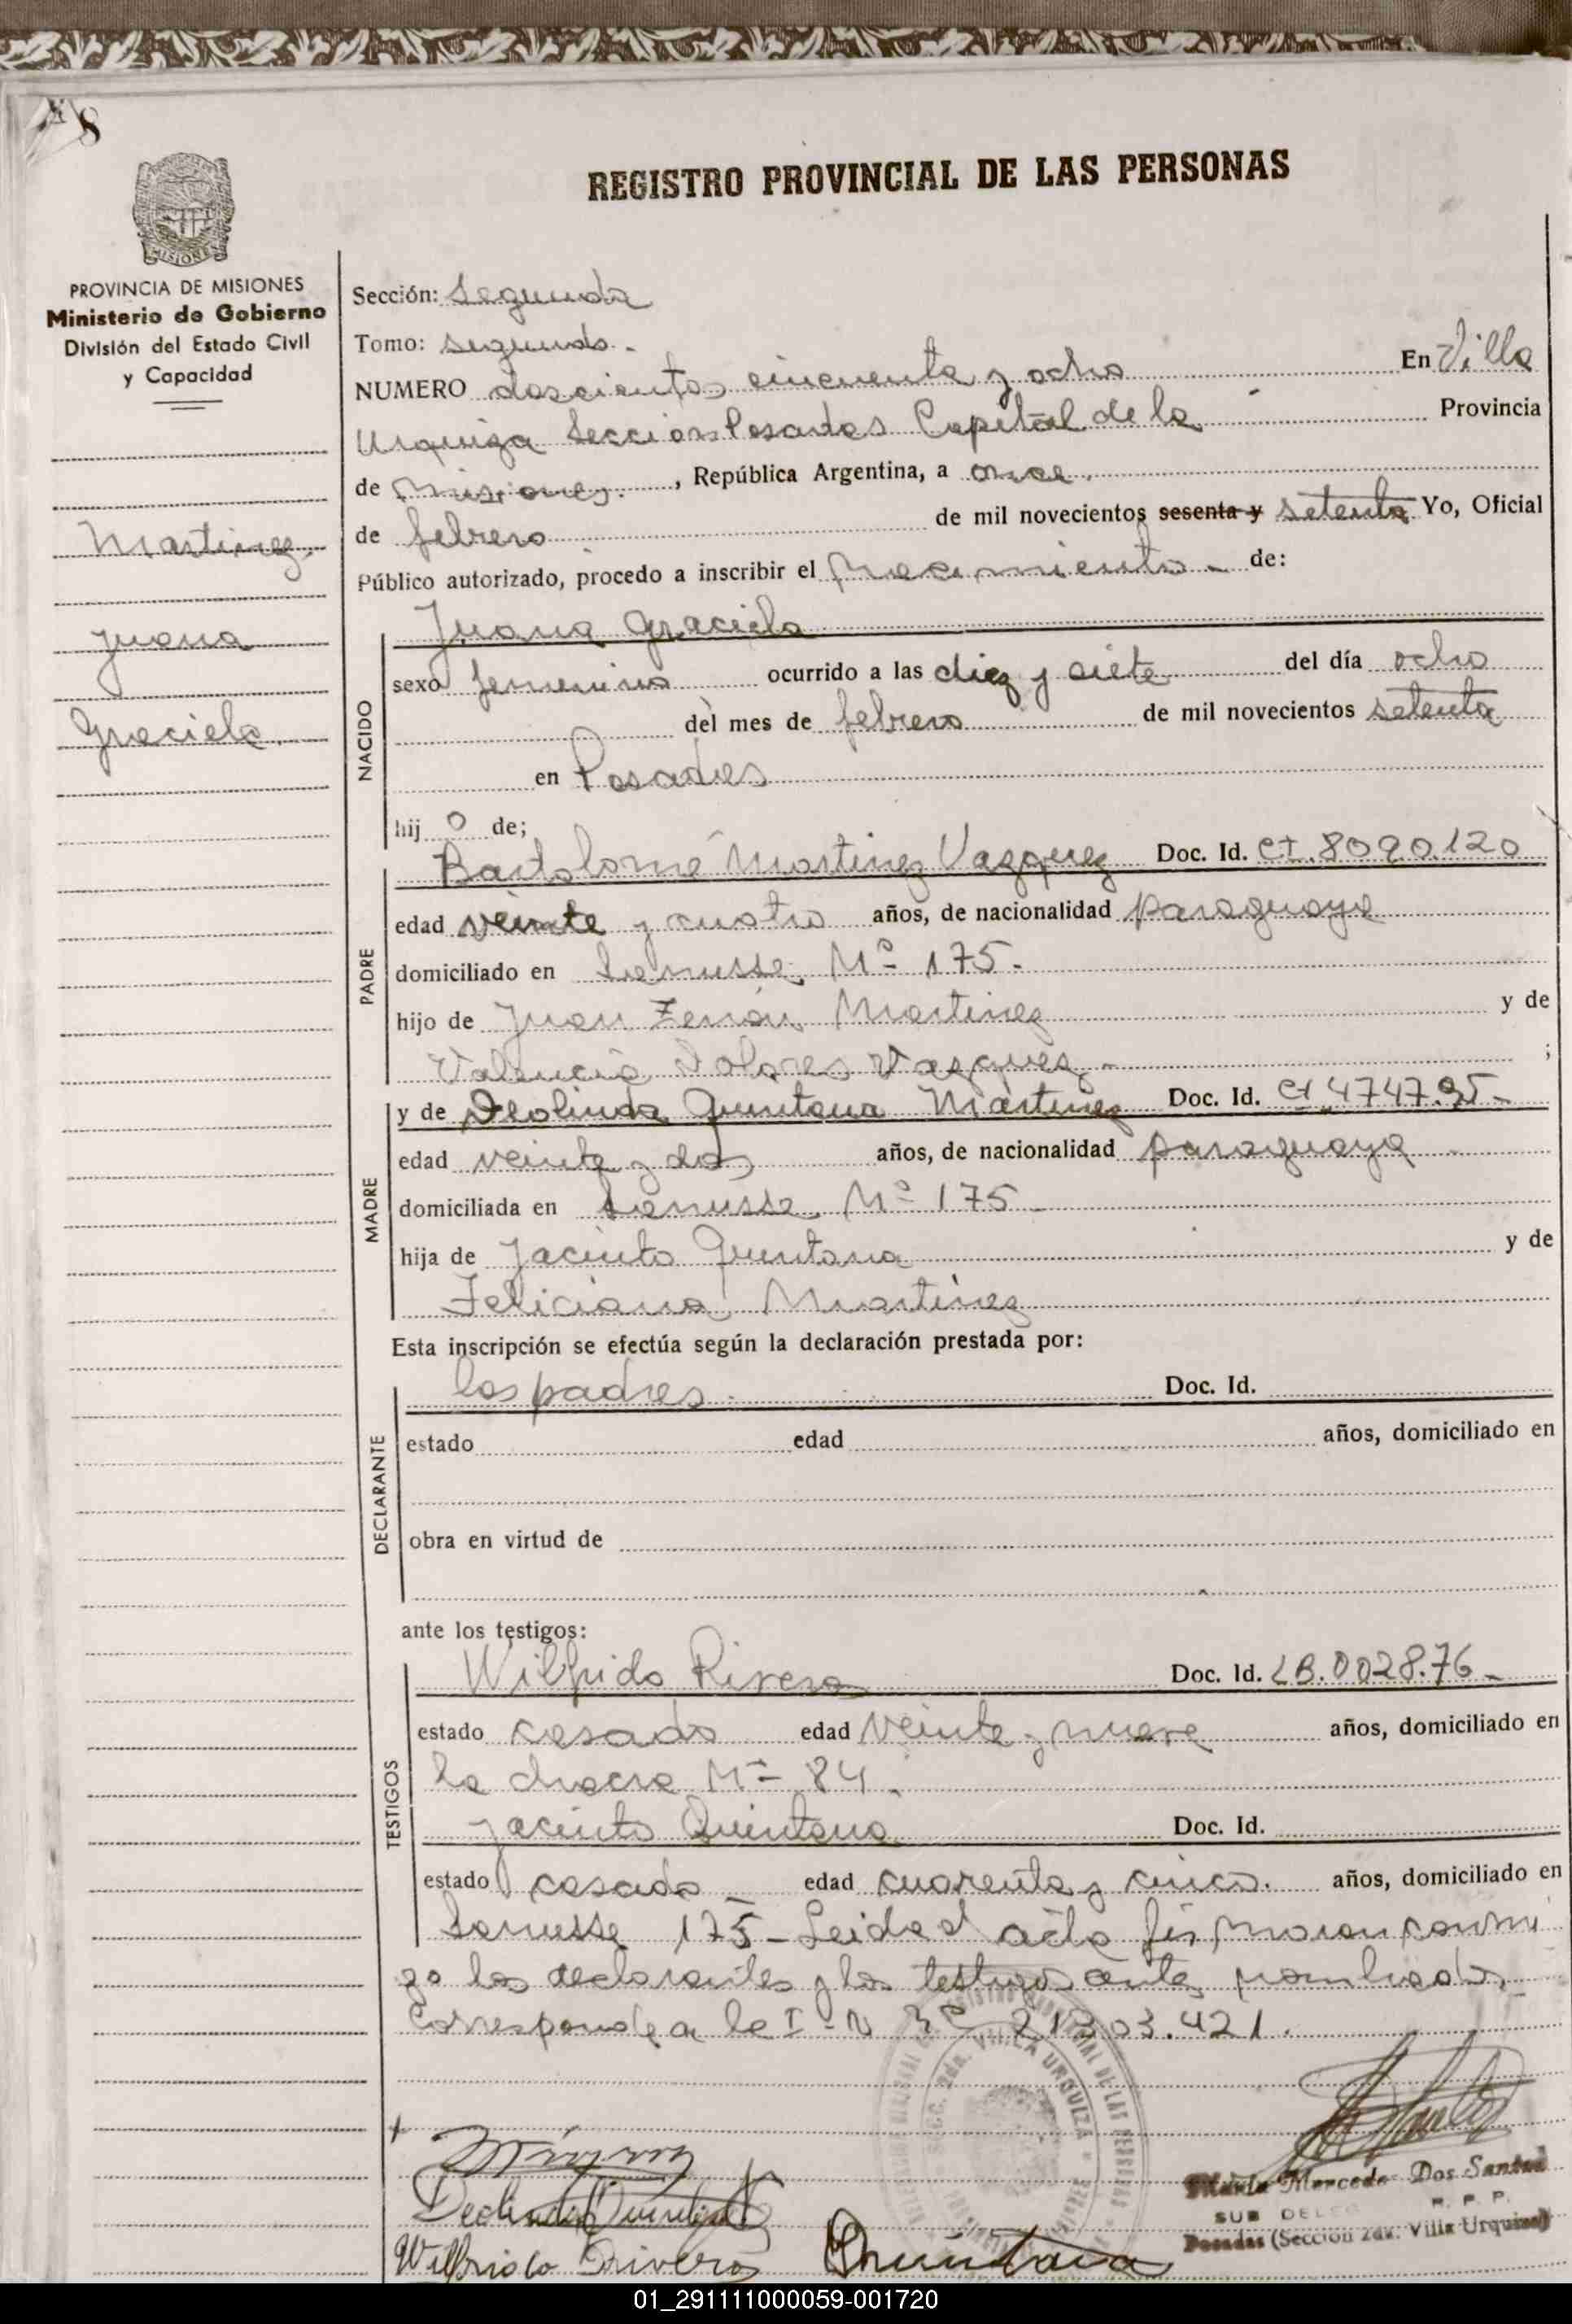 8
REGISTRO PROVINCIAL DE LAS PERSONAS
MISIONES
PROVINCIA DE MISIONES
Ministerio de Gobierno
División del Estado Civil
y Capacidad
Martinez
Juana
Graciela
Sección: Segunda
Tomo: Segundo.
NUMERO doscientos cincuenta y ocho En Villa
Urquiza Sección Posadas Capital de la Provincia
de Misiones., República Argentina, a once
de febrero de mil novecientos sesenta y setenta Yo, Oficial
Público autorizado, procedo a inscribir el Nacimiento - de:
NACIDO
Juana Graciela
sexo femenino ocurrido a las diez y siete del día ocho
del mes de febrero de mil novecientos setenta
en Posadas
hij o de;
PADRE
Bartolomé Martinez Vazquez Doc. Id. CI. 8090.120
edad veinte y cuatro años, de nacionalidad paraguaya
domiciliado en Lanusse Nº 175.
hijo de Juan Zenón Martinez y de
Valencia Dolores Vazquez - ;
MADRE
y de Deolinda Quintana Martinez Doc. Id. CI 4747.95-
edad veinte y dos años, de nacionalidad paraguaya
domiciliada en Lanusse Nº 175
hija de Jacinto Quintana y de
Feliciana Martinez
Esta inscripción se efectúa según la declaración prestada por:
DECLARANTE
los padres. Doc. Id.
estado edad años, domiciliado en
obra en virtud de
ante los testigos:
TESTIGOS
Wilfrido Rivero Doc. Id. LB.0028.76-
estado casado edad veinte y nueve años, domiciliado en
la chacra Nº 84.
Jacinto Quintana Doc. Id.
estado casado edad cuarenta y cinco. años, domiciliado en
Lanusse 175- Leida el acta firmaron conmi
go los declarantes y los testigos antes nombrados
Corresponde a la I-N 21303.421.
Secc. 2da. VILLA URQUIZA
Deolinda Quintana
Wilfrido Rivero Quintana
María Mercedes Dos Santos
SUB DELEG R. P. P.
Posadas (Sección 2da. Villa Urquiza)
01_291111000059-001720